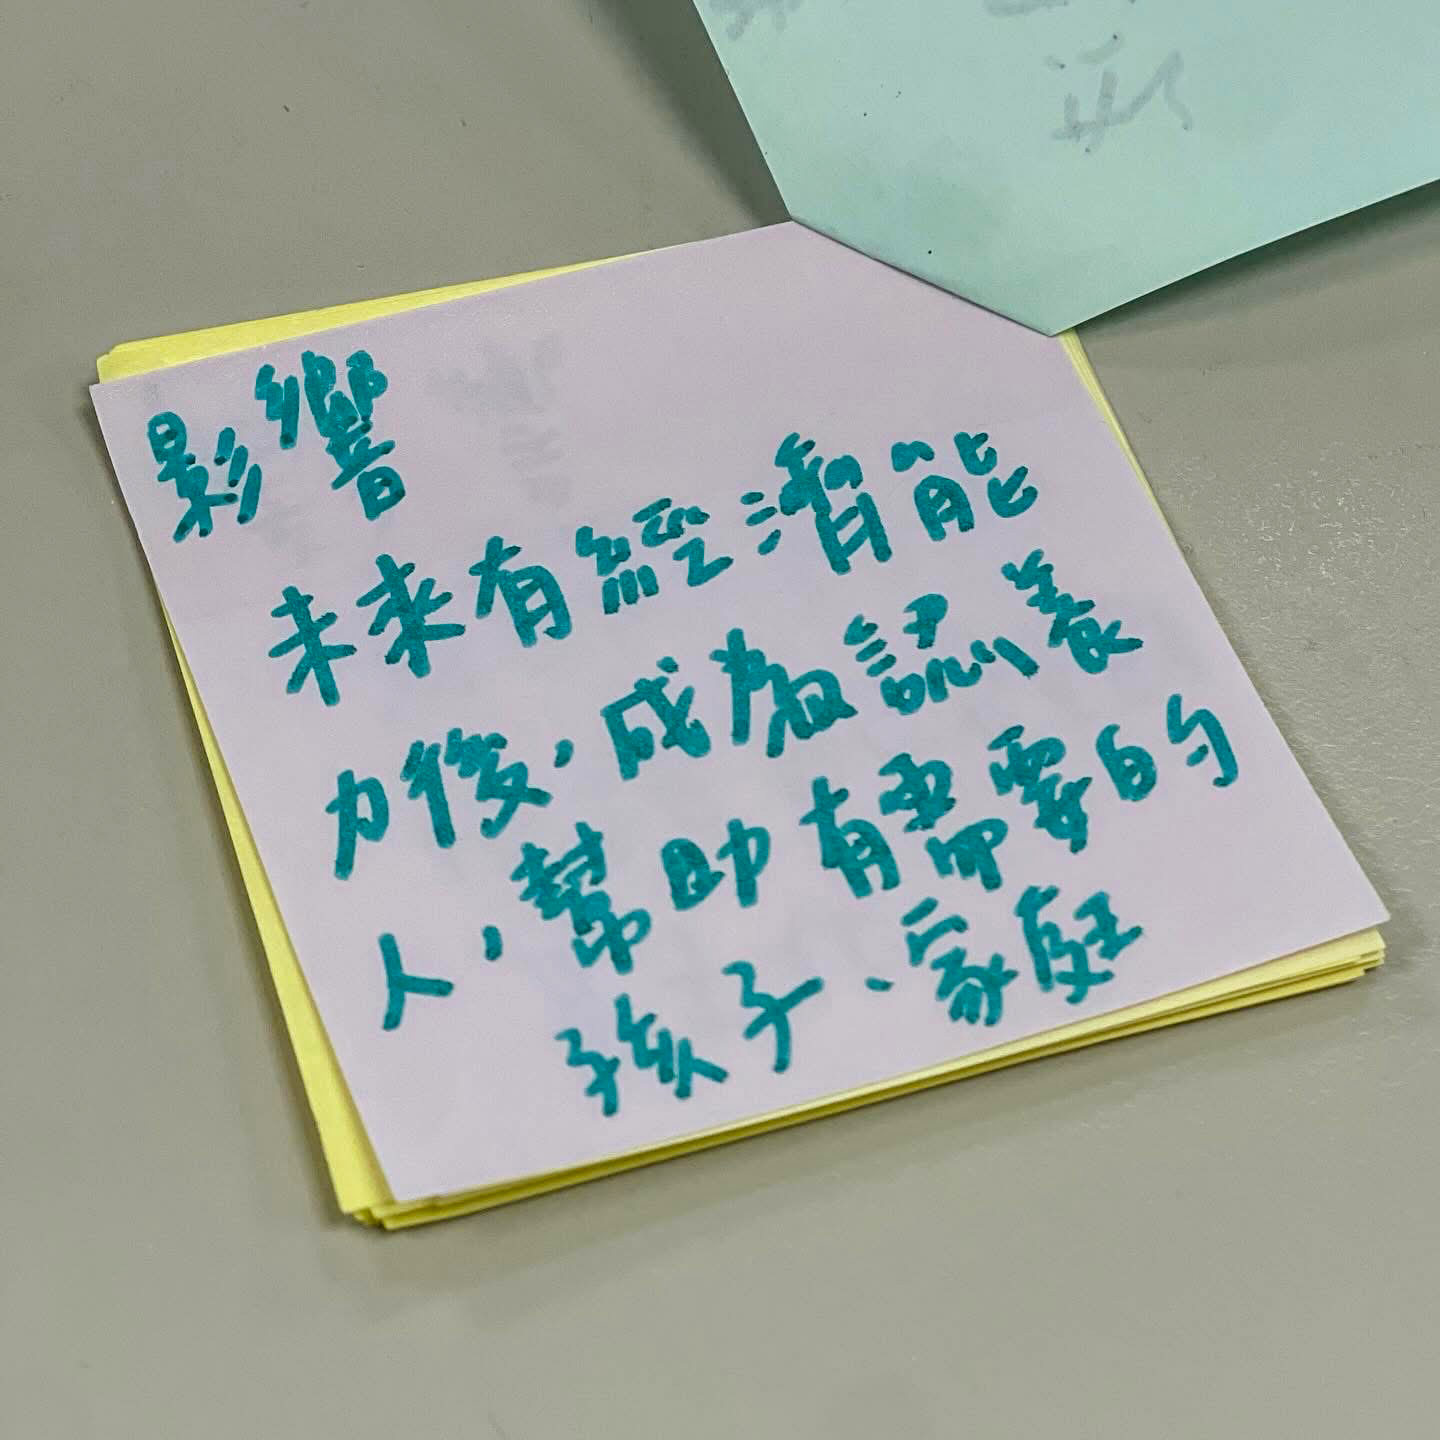 影響
未來有經濟能
力後,成為認養
人,幫助有需要的
孩子、家庭